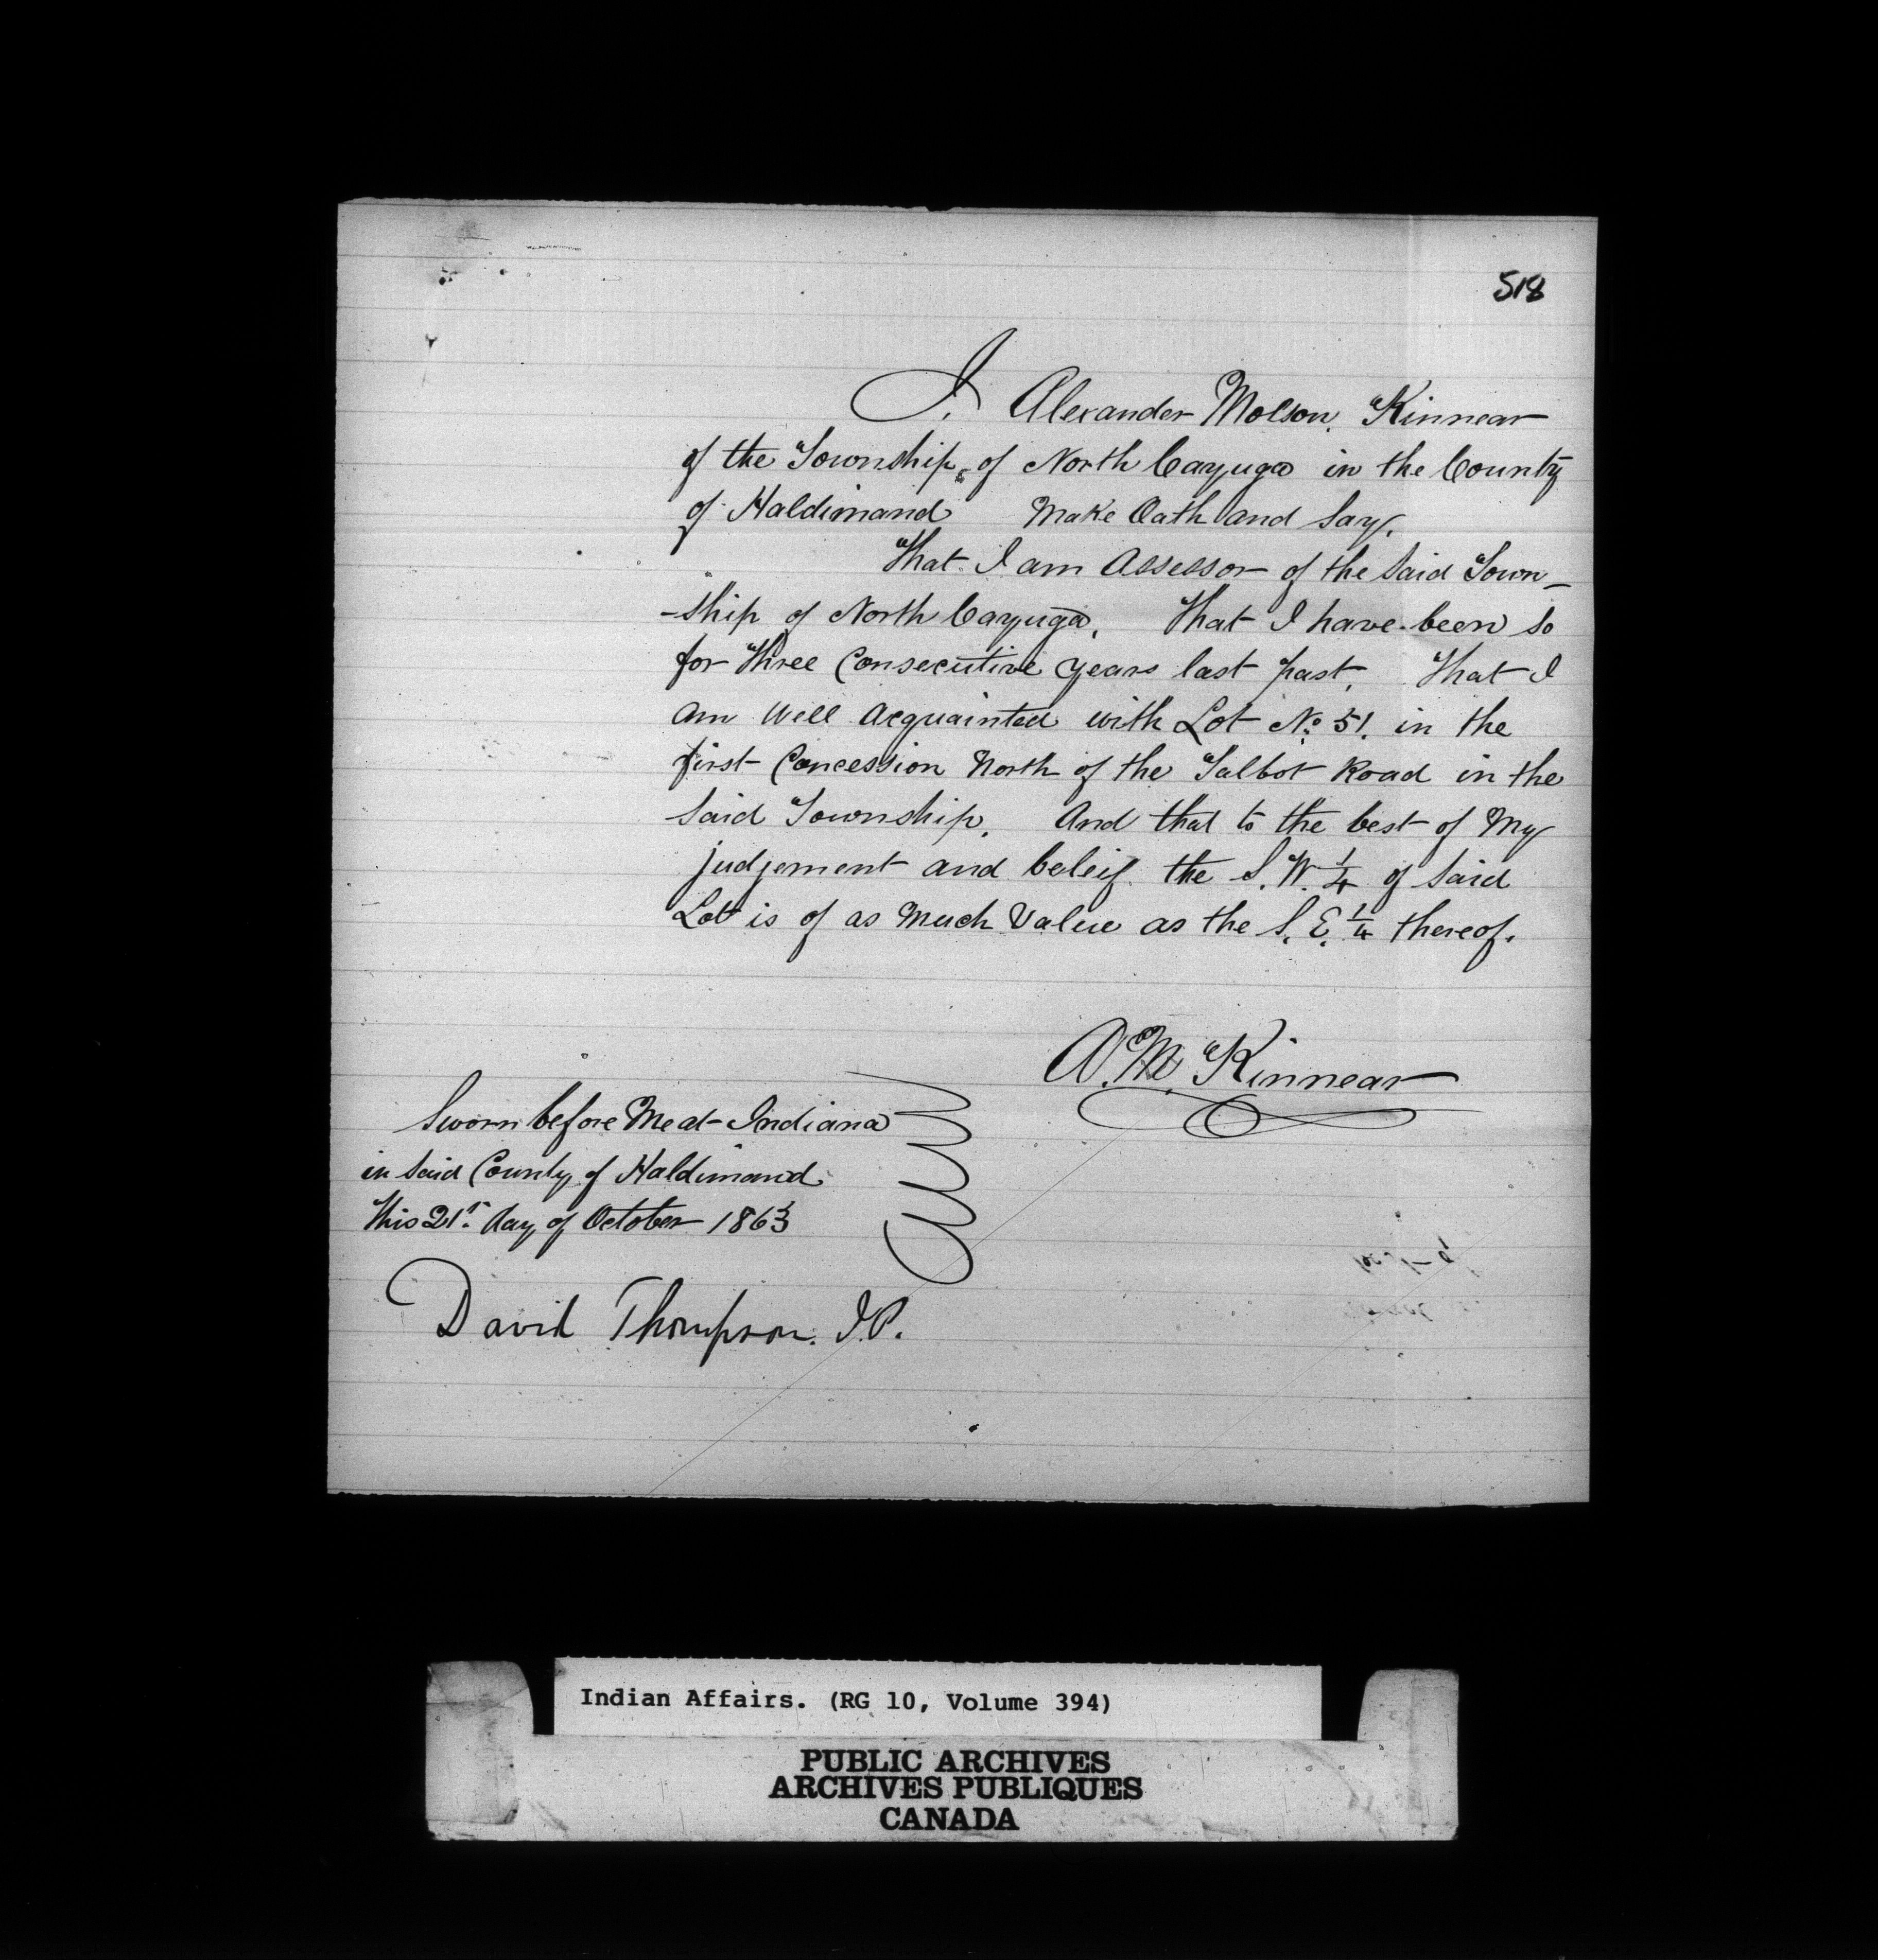 518
I. Alexander Molson, Kinnear
of the Township, of North Cayuga in the County
of Haldimand Make Oath and Say,
That I am Assessor of the Said Town-
-ship of North Cayuga, That I have been So
for three Consecutive years last past, That I
am Well Acquainted with Lot No. 51. in the
first Concession North of the Talbot Road in the
Said Township, And that to the best of My
judgement and beleif the S.W. 1/4 of Said
Lot is of as Much Value as the S.E. 1/4 thereof.
A.M. Kinnear
Sworn before Me at Indiana
in Said County of Haldimand
this 21st. day of October 1863
David Thompson. J.P.
Indian Affairs. (RG 10, Volume 394)
PUBLIC ARCHIVES
ARCHIVES PUBLIQUES
CANADA